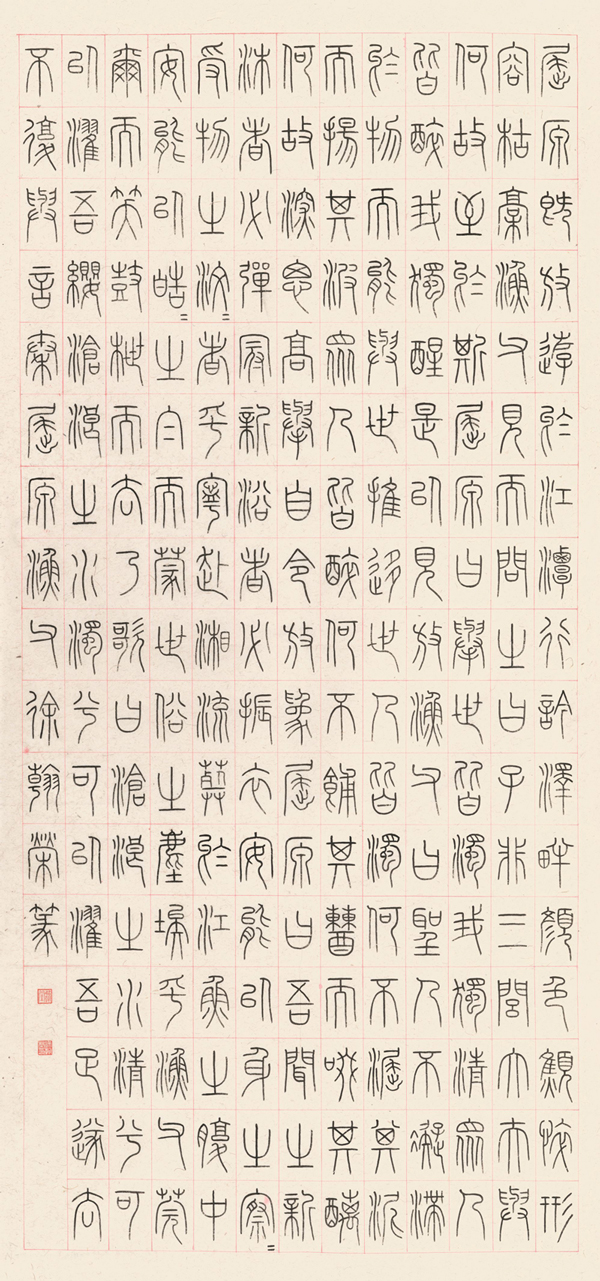 屈原既放遊於江潭行訡澤畔顏色顦悴形
容枯槁漁父見而問之曰子非三閭大夫與
何故至於斯屈原曰舉世皆濁我獨清眾人
皆醉我獨醒是以見放漁父曰聖人不凝滯
於物而能與世推移世人皆濁何不淈其泥
而揚其波眾人皆醉何不餔其糟而歠其釃
何故深思高舉自令放為屈原曰吾聞之新
沐者必彈冠新浴者必振衣安能以身之察=
受物之汶=者乎寧赴湘流葬於江魚之腹中
安能以皓=之白而蒙世俗之塵埃乎漁父莞
爾而笑鼓枻而去乃歌曰滄浪之水清兮可
以濯吾纓滄浪之水濁兮可以濯吾足遂去
不復與言秦屈原漁父徐翰榮篆